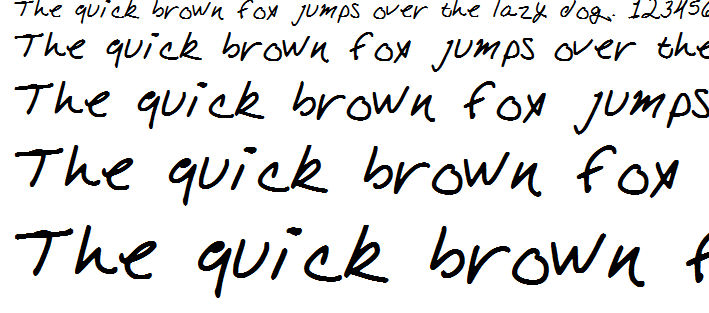 The quick brown fox jumps over the lazy dog. 123456
The quick brown fox jumps over the
The quick brown fox jumps
The quick brown fox
The quick brown f